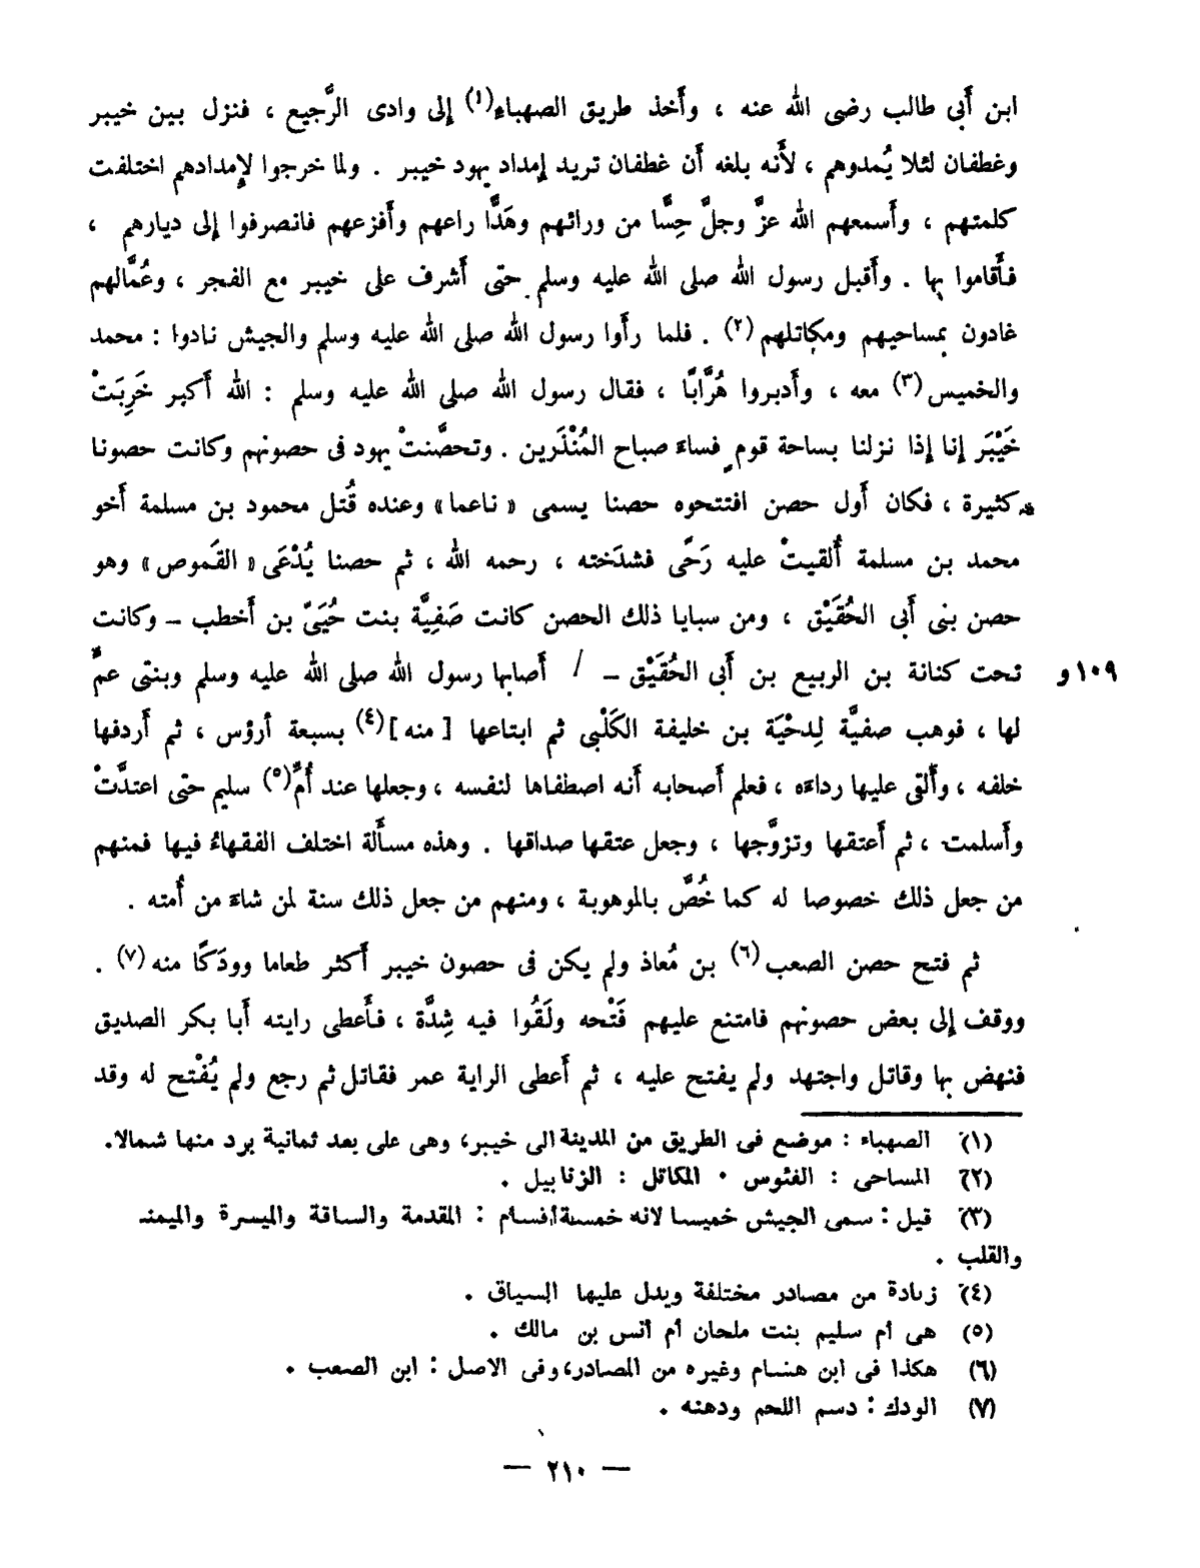 ابن أَبى طالب رضى الله عنه ، وأَخذ طريق الصهباءِ(١) إلى وادى الرَّجيع ، فنزل بين خيبر
وغطفان لئلا يُمدوهم ، لأَنه بلغه أَن غطفان تريد إمداد يهود خيبر . ولما خرجوا لإِمدادهم اختلفت
كلمتهم ، وأَسمعهم الله عزَّ وجلَّ حِسًّا من ورائهم وهَدًّا راعهم وأَفزعهم فانصرفوا إلى ديارهم ،
فأَقاموا بها . وأَقبل رسول الله صلى الله عليه وسلم حتى أَشرف على خيبر مع الفجر ، وعُمَّالهم
غادون بمساحيهم ومكاتلهم(٢) . فلما رأَوا رسول الله صلى الله عليه وسلم والجيش نادوا : محمد
والخميس(٣) معه ، وأَدبروا هُرَّابًا ، فقال رسول الله صلى الله عليه وسلم : الله أَكبر خَرِبَتْ
خَيْبَر إنا إذا نزلنا بساحة قومٍ فساءَ صباح المُنْذَرين . وتحصَّنتْ يهود فى حصونهم وكانت حصونا
كثيرة ، فكان أَول حصن افتتحوه حصنا يسمى « ناعما » وعنده قُتل محمود بن مسلمة أَخو
محمد بن مسلمة أُلقيتْ عليه رَحًى فشدَخته ، رحمه الله ، ثم حصنا يُدْعَى « القَموص » وهو
حصن بنى أَبى الحُقَيْق ، ومن سبايا ذلك الحصن كانت صَفِيَّة بنت حُيَىّ بن أَخطب – وكانت
١٠٩ و تحت كنانة بن الربيع بن أَبى الحُقَيْق – / أَصابها رسول الله صلى الله عليه وسلم وبنتى عمٍّ
لها ، فوهب صفيَّة لِدحْيَة بن خليفة الكَلْبى ثم ابتاعها [ منه ](٤) بسبعة أرؤس ، ثم أَردفها
خلفه ، وأَلقى عليها رداءَه ، فعلم أَصحابه أَنه اصطفاها لنفسه ، وجعلها عند أُمِّ(٥) سليم حتى اعتدَّتْ
وأَسلمت ، ثم أَعتقها وتزوَّجها ، وجعل عتقها صداقها . وهذه مسأَلة اختلف الفقهاءُ فيها فمنهم
من جعل ذلك خصوصا له كما خُصَّ بالموهوبة ، ومنهم من جعل ذلك سنة لمن شاءَ من أُمته .
ثم فتح حصن الصعب(٦) بن مُعاذ ولم يكن فى حصون خيبر أَكثر طعاما وودَكًا منه(٧) .
ووقف إلى بعض حصونهم فامتنع عليهم فَتْحه ولَقُوا فيه شِدَّة ، فأَعطى رايته أَبا بكر الصديق
فنهض بها وقاتل واجتهد ولم يفتح عليه ، ثم أَعطى الراية عمر فقاتل ثم رجع ولم يُفْتح له وقد
(١) الصهباء : موضع فى الطريق من المدينة الى خيبر، وهى على بعد ثمانية برد منها شمالا.
(٢) المساحى : الفئوس . المكاتل : الزنابيل .
(٣) قيل : سمى الجيش خميسا لانه خمسة أقسام : المقدمة والساقة والميسرة والميمنة
والقلب .
(٤) زيادة من مصادر مختلفة ويدل عليها السياق .
(٥) هى أم سليم بنت ملحان أم أنس بن مالك .
(٦) هكذا فى ابن هشام وغيره من المصادر، وفى الاصل : ابن الصعب .
(٧) الودك : دسم اللحم ودهنه .
— ٢١٠ —